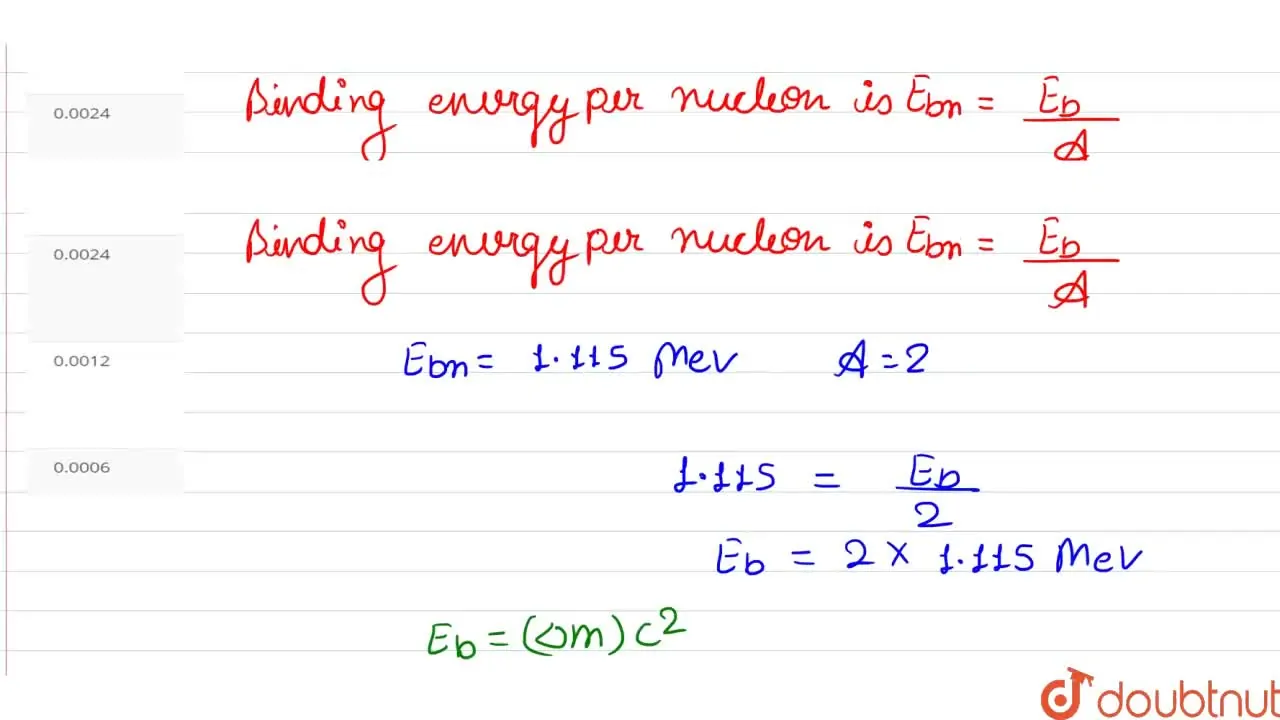 0.0024
Binding energy per nucleon is Ebn = Eb / A
0.0024
Binding energy per nucleon is Ebn = Eb / A
Ebn = 1.115 Mev A = 2
0.0012
0.0006
1.115 = Eb / 2
Eb = 2 × 1.115 Mev
Eb = (△m) c²
doubtnut